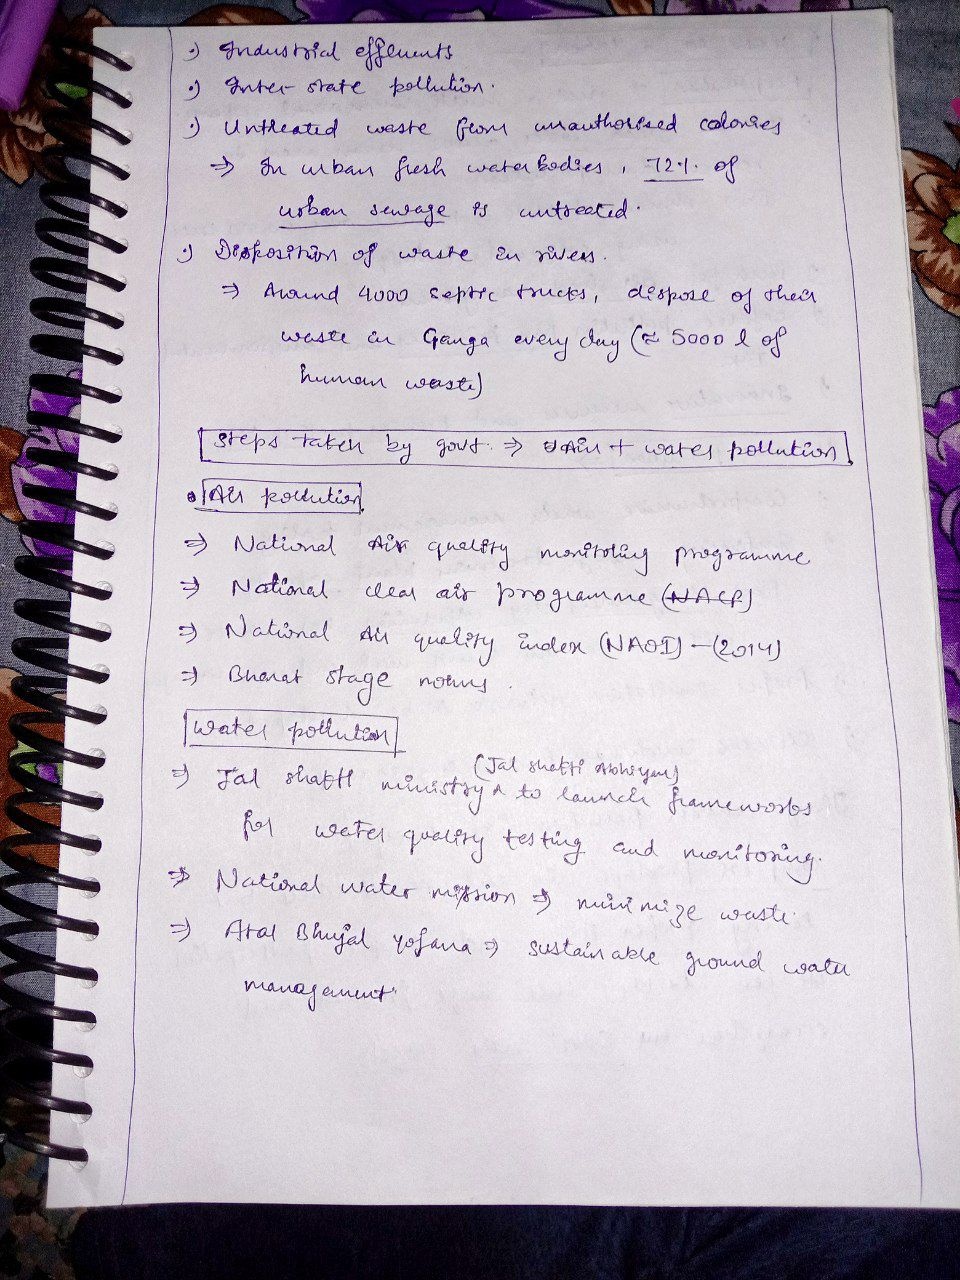 ·) Industrial effluents
·) Inter-state pollution.
·) Untreated waste from unauthorised colonies
⇒ In urban fresh waterbodies, 72% of
urban sewage is untreated.
·) Disposition of waste in rivers.
⇒ Around 4000 septic trucks, dispose of their
waste in Ganga every day (≈ 5000 l of
human waste)
Steps taken by govt. ⇒ Air + water pollution
• Air pollution
⇒ National Air quality monitoring programme
⇒ National clean air programme (NACP)
⇒ National Air quality index (NAQI) - (2014)
⇒ Bharat stage norms.
Water pollution
(Jal shakti Abhiyan)
⇒ Jal shakti ministry ^ to launch frameworks
for water quality testing and monitoring.
⇒ National water mission ⇒ minimize waste.
⇒ Atal Bhujal Yojana ⇒ sustainable ground water
management.